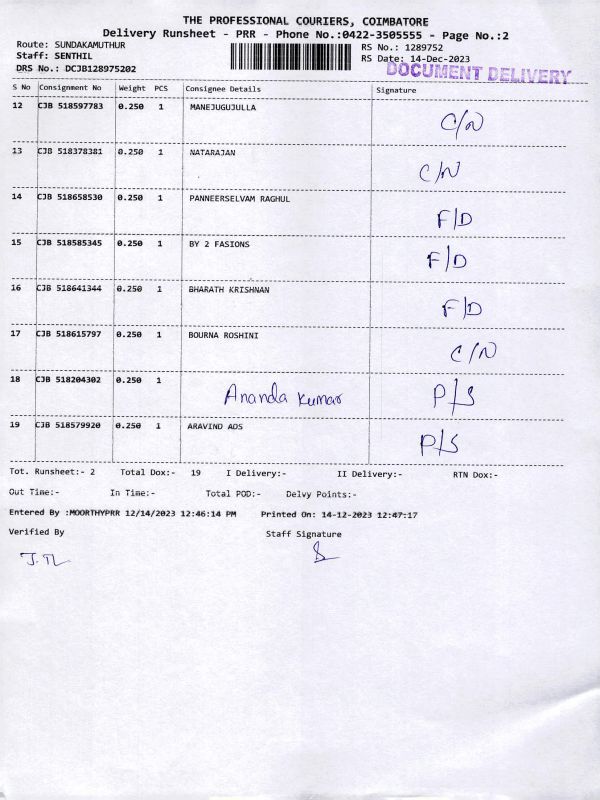 THE PROFESSIONAL COURIERS, COIMBATORE
Delivery Runsheet - PRR - Phone No.:0422-3505555 - Page No.:2
Route: SUNDAKAMUTHUR
RS No.: 1289752
Staff: SENTHIL
RS Date: 14-Dec-2023
DRS No.: DCJB128975202
DOCUMENT DELIVERY
S No Consignment No Weight PCS Consignee Details Signature
12 CJB 518597783 0.250 1 MANEJUGUJULLA C/N
13 CJB 518378381 0.250 1 NATARAJAN C/N
14 CJB 518658530 0.250 1 PANNEERSELVAM RAGHUL F/D
15 CJB 518585345 0.250 1 BY 2 FASIONS F/D
16 CJB 518641344 0.250 1 BHARATH KRISHNAN F/D
17 CJB 518615797 0.250 1 BOURNA ROSHINI C/N
18 CJB 518204302 0.250 1 Ananda Kumar P/S
19 CJB 518579920 0.250 1 ARAVIND ADS P/S
Tot. Runsheet:- 2 Total Dox:- 19 I Delivery:- II Delivery:- RTN Dox:-
Out Time:- In Time:- Total POD:- Delvy Points:-
Entered By :MOORTHYPRR 12/14/2023 12:46:14 PM Printed On: 14-12-2023 12:47:17
Verified By Staff Signature